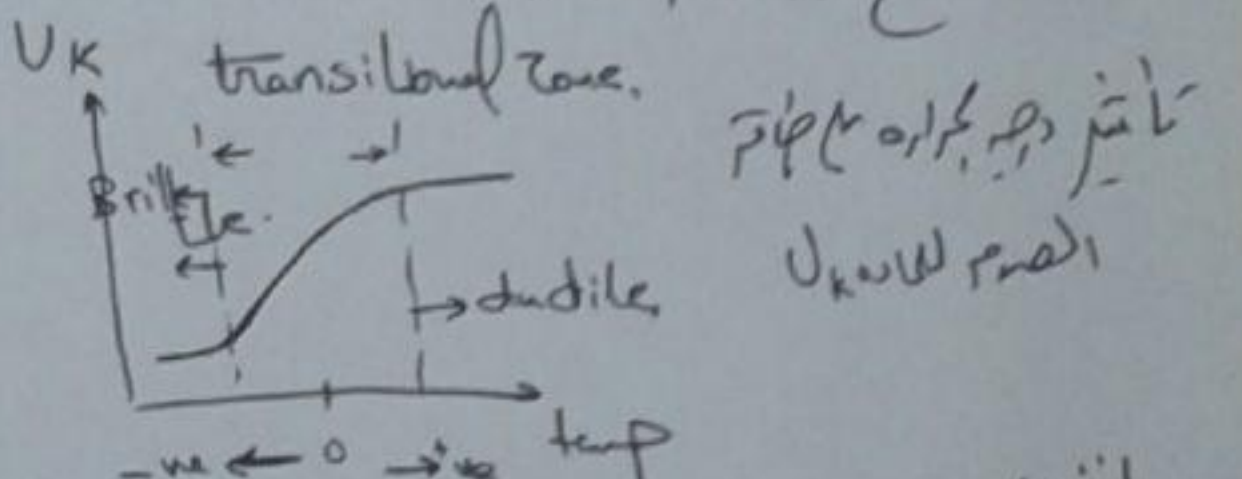 UK
transitional zone.
Brittle.
ductile
-ve ← 0 → +ve
temp
تأثير درجه الحراره على طاقة
الصدم للماده UK